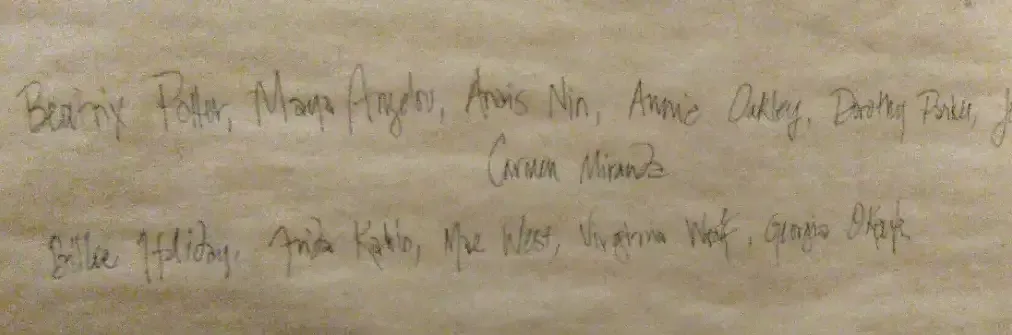 Beatrix Potter, Maya Angelou, Anais Nin, Annie Oakley, Dorothy Parker,
Carmen Miranda
Billie Holiday, Frida Kahlo, Mae West, Virginia Woolf, Georgia OKeefe